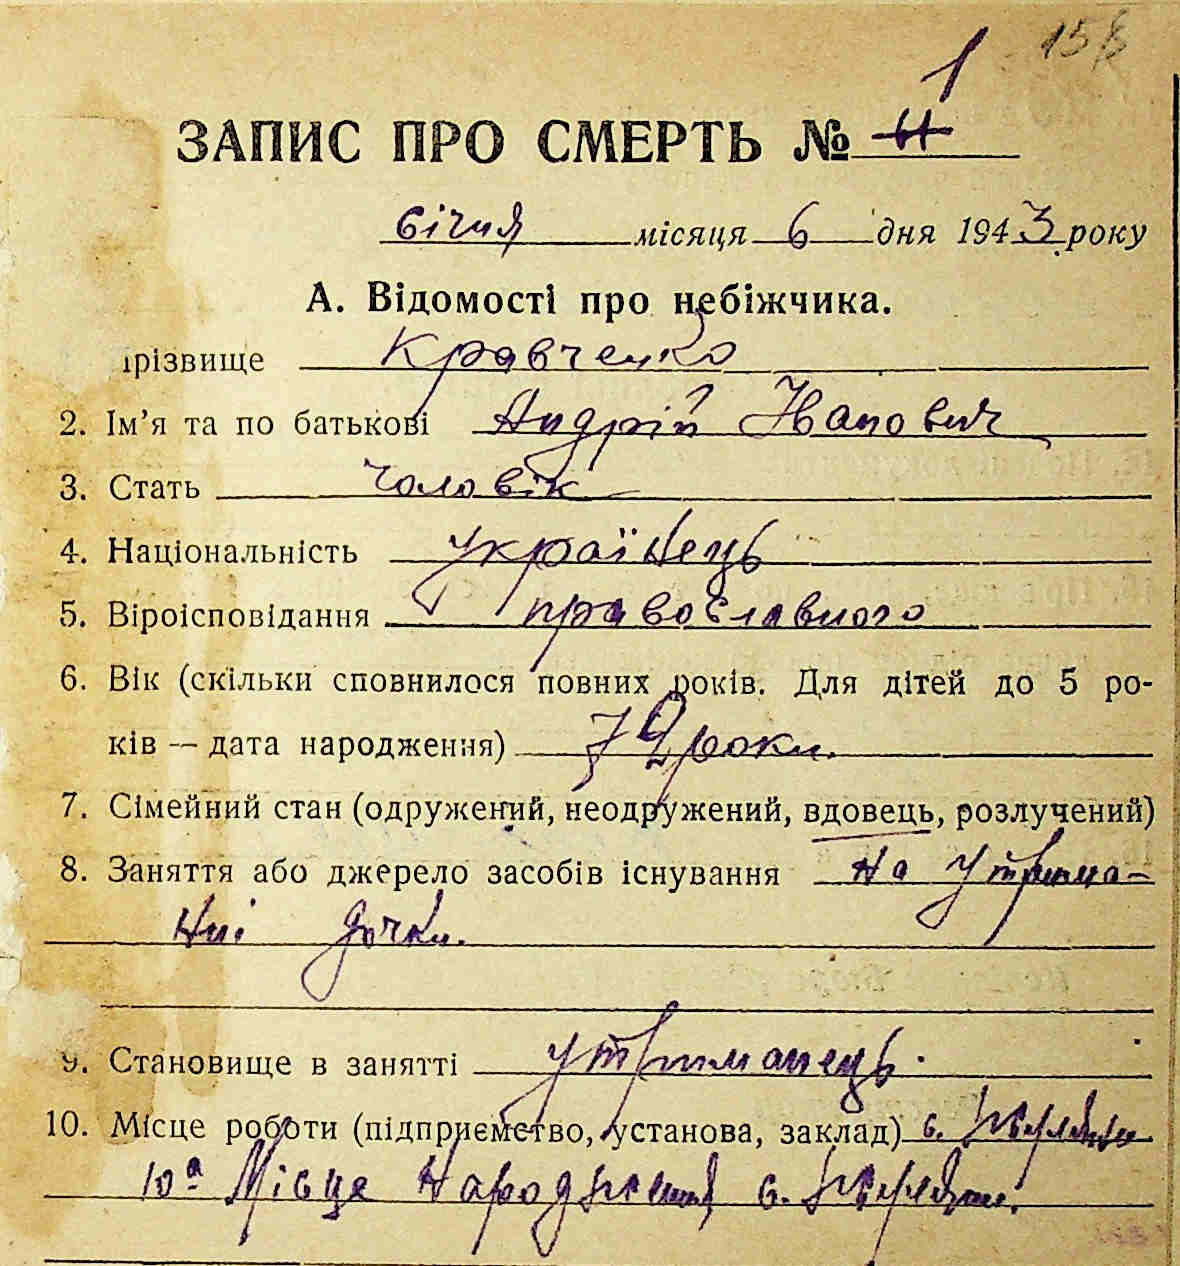 158
1
ЗАПИС ПРО СМЕРТЬ № 61
січня місяця 6 дня 1943 року
А. Відомості про небіжчика.
різвище Кравченко
2. Ім’я та по батькові Андрій Іванович
3. Стать Чоловік
4. Національність українець
5. Віроісповідання православного
6. Вік (скільки сповнилося повних років. Для дітей до 5 ро-
ків — дата народження) 72 роки.
7. Сімейний стан (одружений, неодружений, вдовець, розлучений)
8. Заняття або джерело засобів існування на утрима-
нні дочки.
9. Становище в занятті утриманець.
10. Місце роботи (підприємство, установа, заклад) с.
10а Місце народження с.